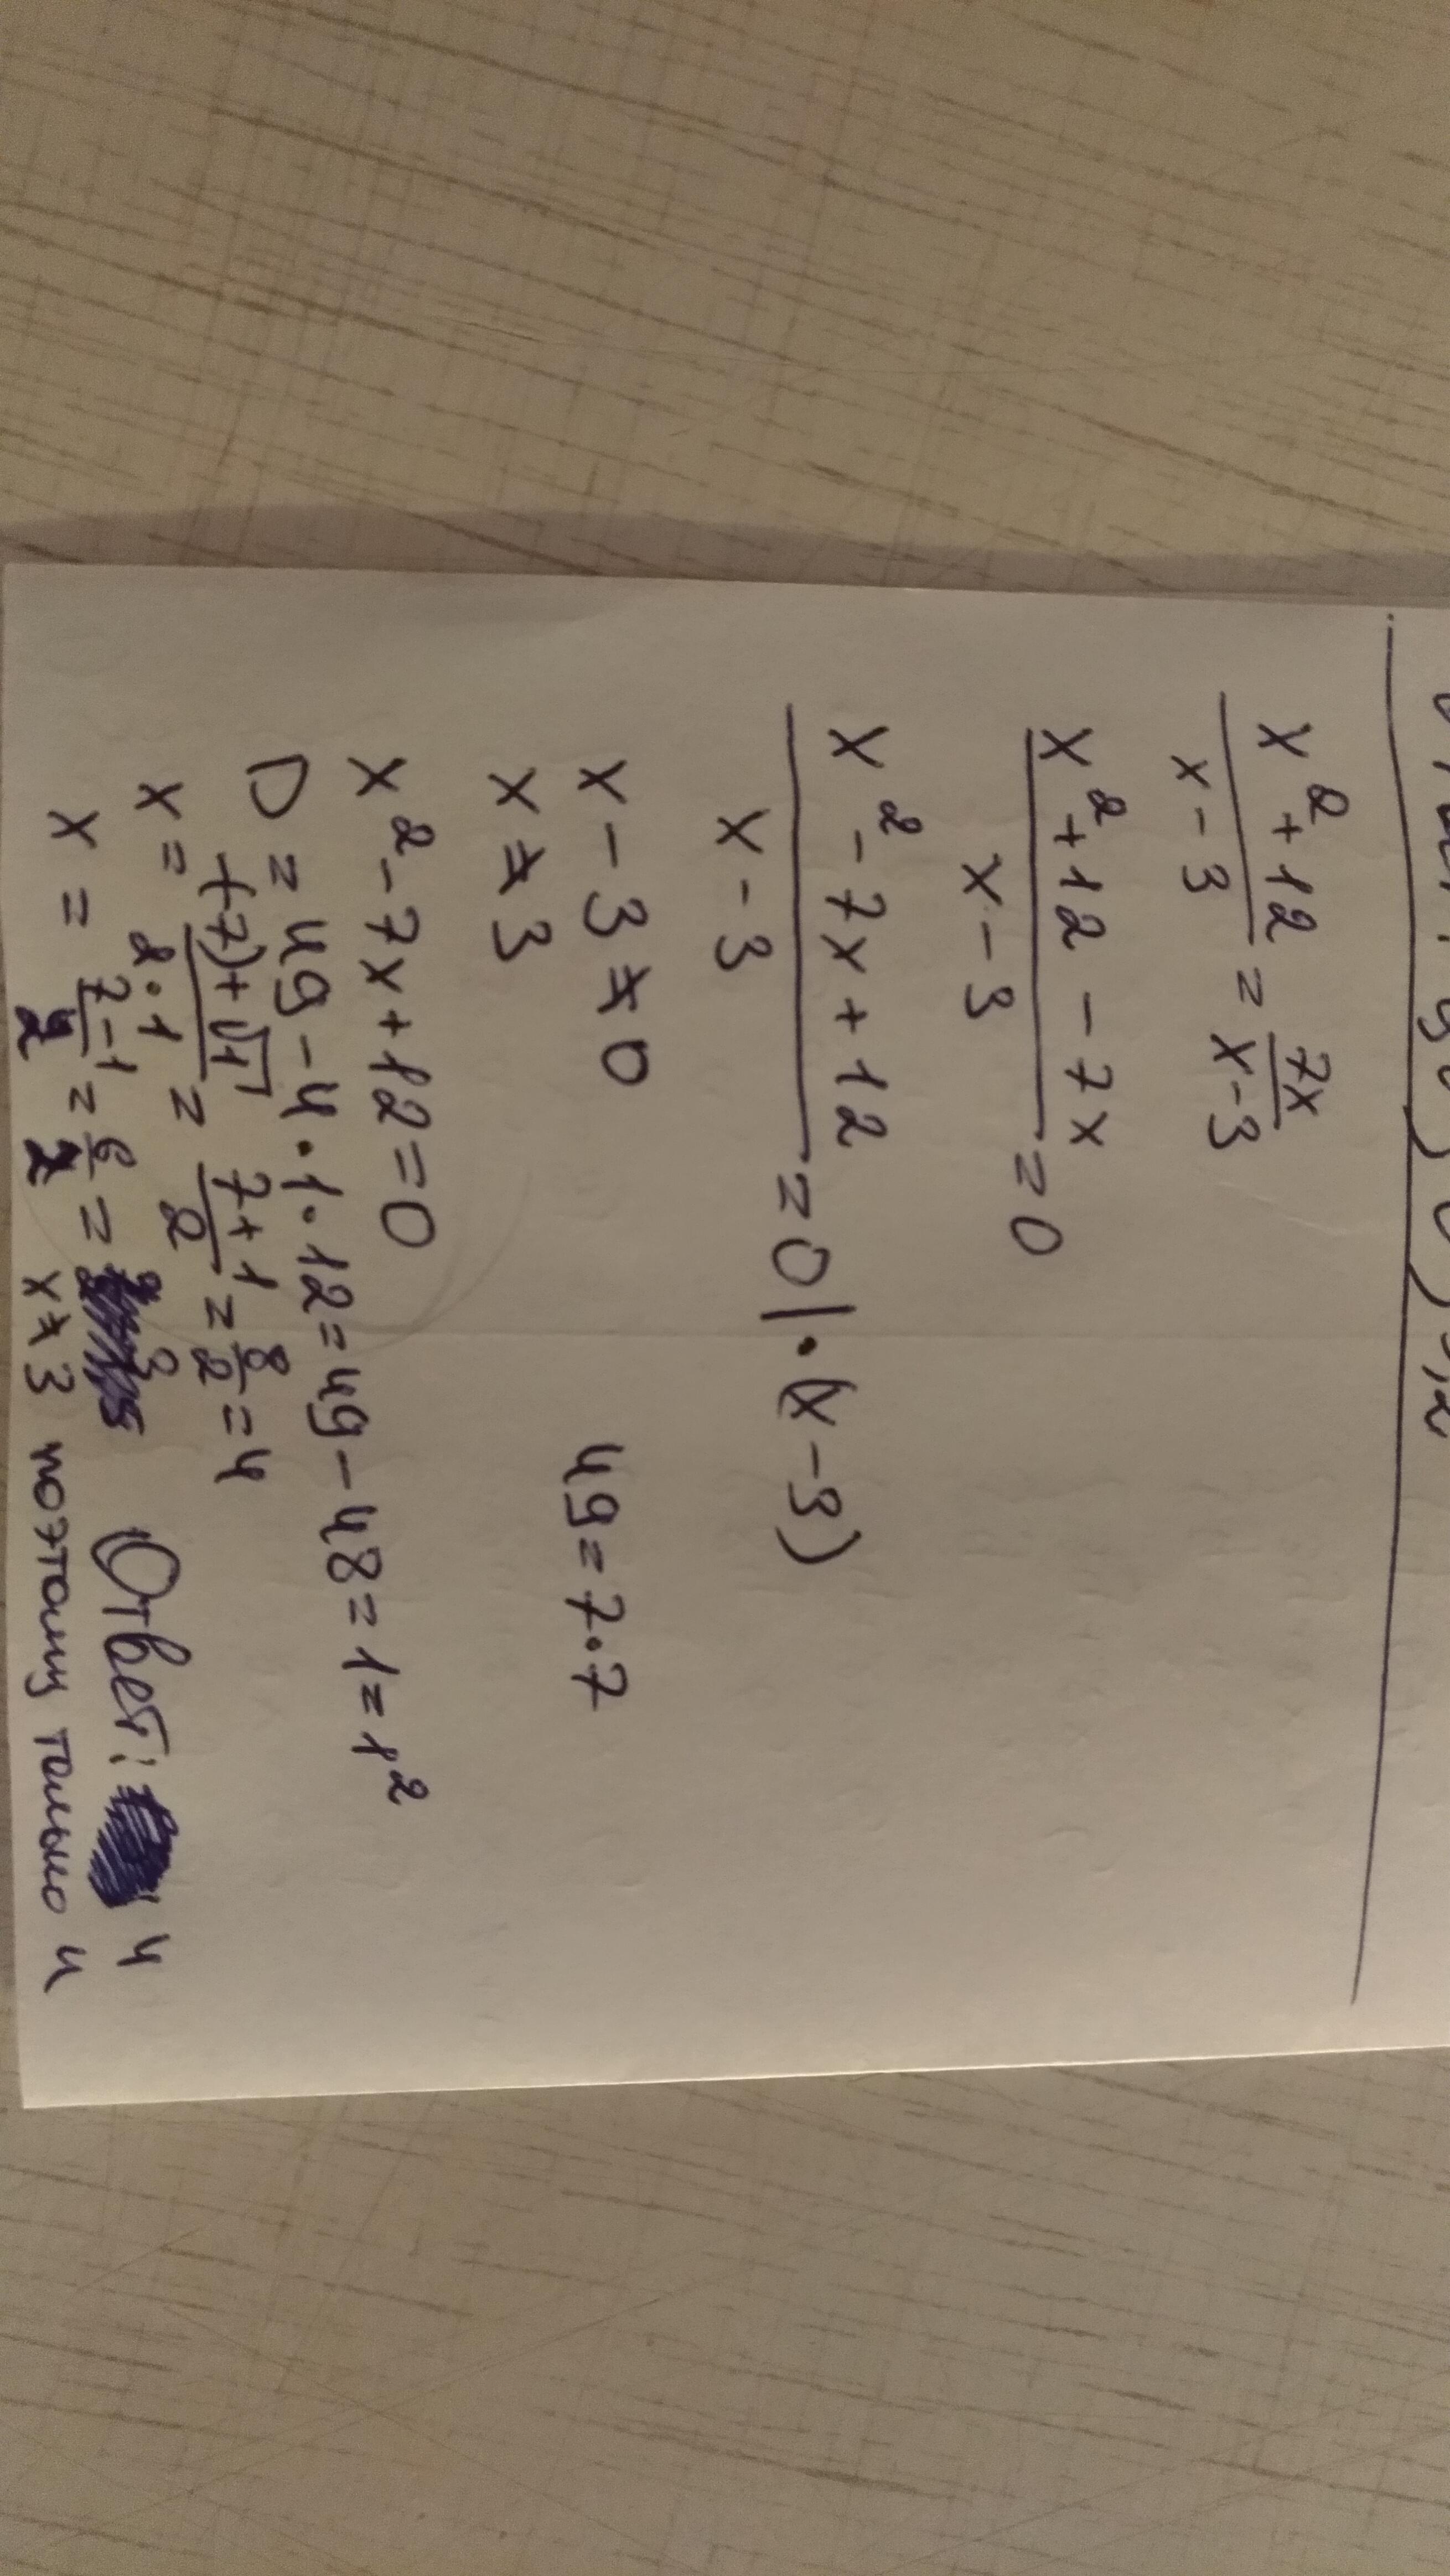 x² + 12 / x - 3 = 7x / x - 3
x² + 12 - 7x / x - 3 = 0
x² - 7x + 12 / x - 3 = 0 | · (x - 3)
x - 3 ≠ 0
49 = 7 · 7
x ≠ 3
x² - 7x + 12 = 0
D = 49 - 4 · 1 · 12 = 49 - 48 = 1 = 1²
x = (-7) + √1 / 2 · 1 = 7 + 1 / 2 = 8 / 2 = 4
x = 7 - 1 / 2 = 6 / 2 = 3
Ответ: 4
x ≠ 3 поэтому только 4